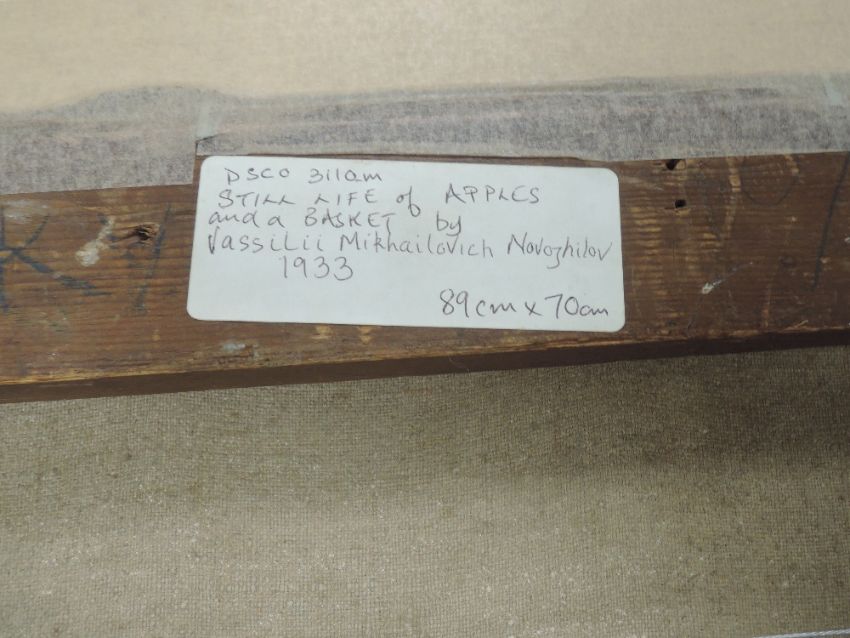 DSCO 311am
STILL LIFE of APPLES
and a BASKET by
Vassilii Mikhailovich Novozhilov
1933
89cm x 70cm